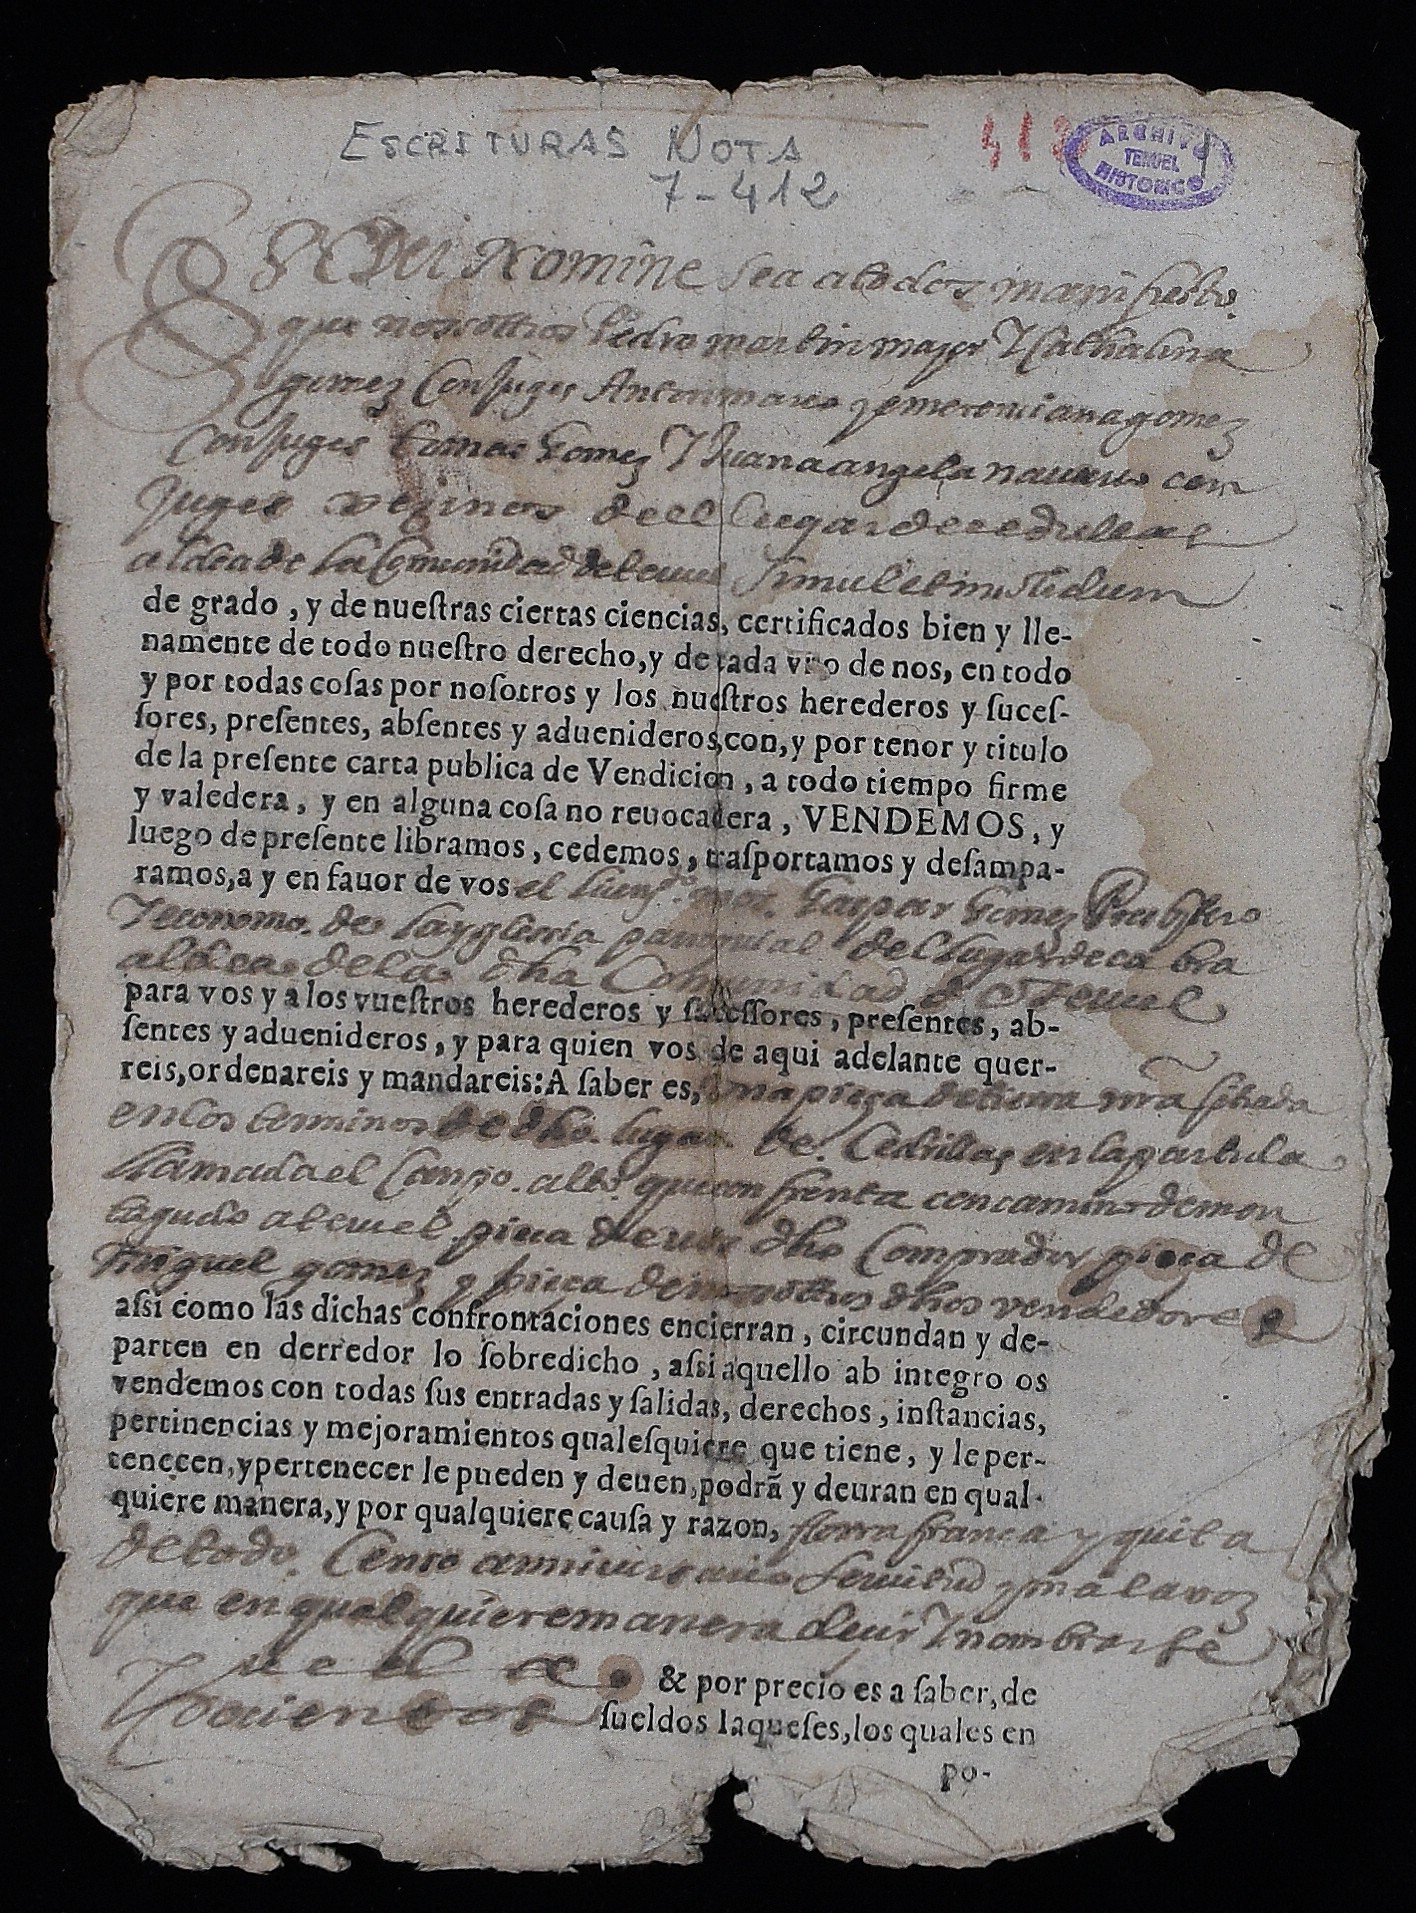 ESCRITURAS NOTA
7-412
412
ARCHIVO
TERUEL
HISTORICO
Dei Nomine sea a todos manifiesto
que nosottros Pedro martin mayor Y Cathalina
gomez Conjuges Anton marco y emerenciana gomez
Conjuges tomas Gomez Y Juana angela nauarro con
juges vezinos deel lugar de cedrillas
aldea de la Comunidad de teruel simul et in solidum
de grado, y de nueſtras ciertas ciencias, certificados bien y lle-
namente de todo nueſtro derecho, y de cada vno de nos, en todo
y por todas coſas por noſotros y los nueſtros herederos y ſuceſ-
ſores, preſentes, abſentes y aduenideros, con, y por tenor y titulo
de la preſente carta publica de Vendicion, a todo tiempo firme
y valedera, y en alguna coſa no reuocadera, VENDEMOS, y
luego de preſente libramos, cedemos, traſportamos y deſampa-
ramos, a y en fauor de vos el mos. Gaspar Gomez Presbytero
Y economo de la yglesia parroquial del lugar de cabra
aldea de la dha Comunidad de Teruel
para vos y a los vueſtros herederos y ſuceſſores, preſentes, ab-
ſentes y aduenideros, y para quien vos de aqui adelante quer-
reis, ordenareis y mandareis: A ſaber es, Una pieça de tierra nra sitiada
en los terminos de dho lugar de Cedrillas en la partida
llamada el Campo alto que confrenta con camino de mon
tagudo a teruel pieça de vos dho Comprador pieça de
miguel gomez y pieça de nosottros dhos vendedores
aſsi como las dichas confrontaciones encierran, circundan y de-
parten en derredor lo ſobredicho, aſsi aquello ab integro os
vendemos con todas ſus entradas y ſalidas, derechos, inſtancias,
pertinencias y mejoramientos qualeſquiere que tiene, y le per-
tenecen, y pertenecer le pueden y deuen, podrã y deuran en qual-
quiere manera, y por qualquiere cauſa y razon, franca y quita
de todo Censo anniversario seruitud y mala voz
que en qualquiere manera decir Y nombrar se
puede & por precio es a ſaber, de
Trecientos ſueldos Iaqueſes, los quales en
po-